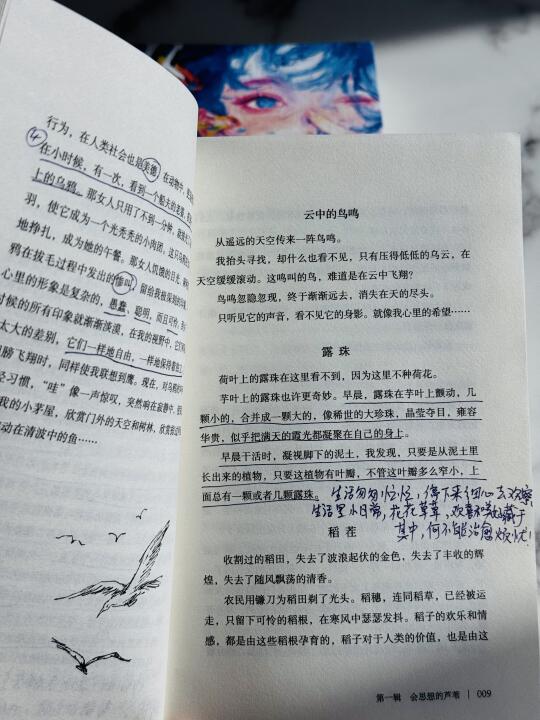 行为，在人类社会也是美德，在动物中，
④
在小时候，有一次，看到一个船夫的老婆，
上的乌鸦。那女人只用了不到一分钟，就
羽，使它成为一个光秃秃的小肉团，这只乌鸦
地挣扎，成为她的午餐。那女人饥饿的目光，
鸦在拔毛过程中发出的惨叫，留给我极深刻的印
心里的形象是复杂的，愚蠢、聪明，而且可怜，
时候的所有印象就渐渐淡漠，在我的视野中，它们
太大的差别，它们一样地自由，一样地保持着
翅膀飞翔时，同样使我联想到鹰。现在，对乌鸦的
经习惯，“哇”像一声惊叹，突然响在寂静
我的小茅屋，欣赏门外的天空和树林，欣赏
动在清波中的鱼……
云中的鸟鸣
从遥远的天空传来一阵鸟鸣。
我抬头寻找，却什么也看不见，只有压得低低的乌云，在
天空缓缓滚动。这鸣叫的鸟，难道是在云中飞翔？
鸟鸣忽隐忽现，终于渐渐远去，消失在天的尽头。
只听见它的声音，看不见它的身影。就像我心里的希望……
露珠
荷叶上的露珠在这里看不到，因为这里不种荷花。
芋叶上的露珠也许更奇妙。早晨，露珠在芋叶上颤动，几
颗小的，合并成一颗大的，像稀世的大珍珠，晶莹夺目，雍容
华贵，似乎把满天的霞光都凝聚在自己的身上。
早晨干活时，凝视脚下的泥土，我发现，只要是从泥土里
长出来的植物，只要这植物有叶瓣，不管这叶瓣多么窄小，上
面总有一颗或者几颗露珠。
生活匆匆忙忙，停下来细心去观察
生活里小日常，花花草草，欢喜就藏于
其中，何不能治愈烦忧！
稻茬
收割过的稻田，失去了波浪起伏的金色，失去了丰收的辉
煌，失去了随风飘荡的清香。
农民用镰刀为稻田剃了光头。稻穗，连同稻草，已经被运
走，只留下可怜的稻根，在寒风中瑟瑟发抖。稻子的欢乐和情
感，都是由这些稻根孕育的，稻子对于人类的价值，也是由这
第一辑 会思想的芦苇 | 009